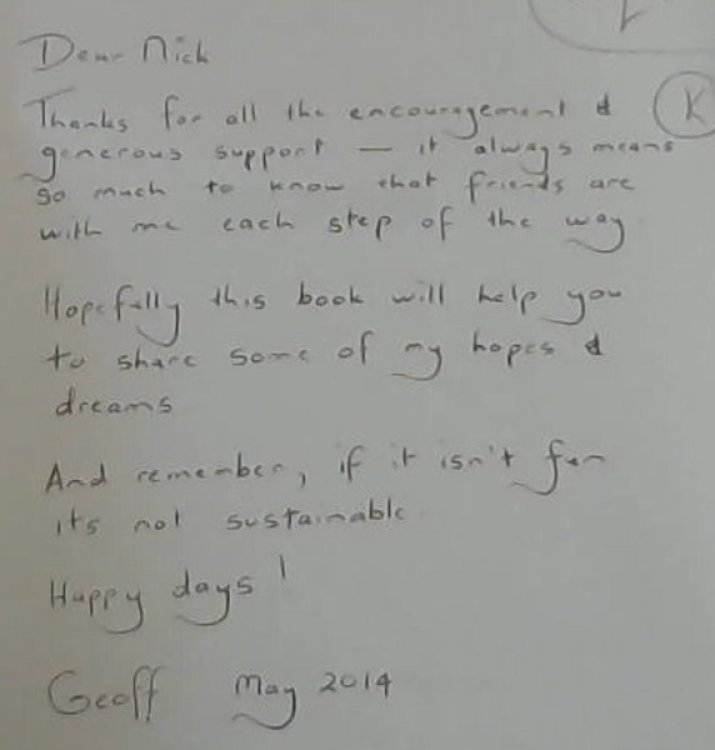 Dear Nick
Thanks for all the encouragement &
K
generous support — it always means
so much to know that friends are
with me each step of the way
Hopefully this book will help you
to share some of my hopes &
dreams
And remember, if it isn't fun
its not sustainable
Happy days!
Geoff May 2014